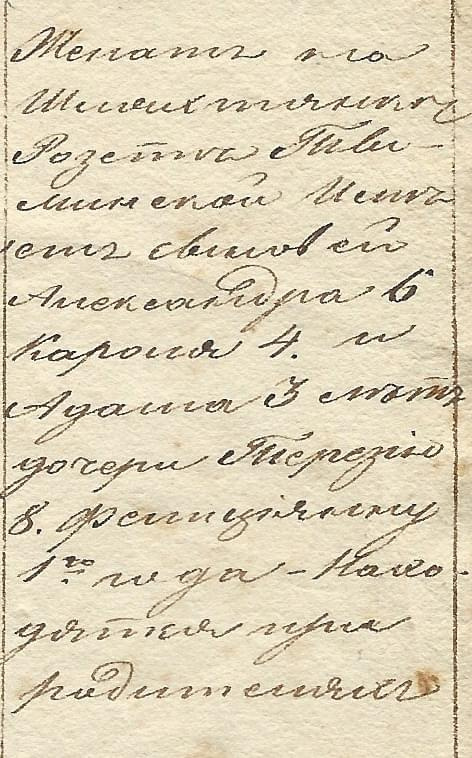 Женатъ на
Шляхтянкѣ
Розетѣ Тви-
минской Имѣ
етъ сыновей
Александра 6
Кароля 4. и
Адама 3 лѣтъ
дочери Терезію
8. Фелиціянну
1го года - Нахо-
дятся при
родителяхъ